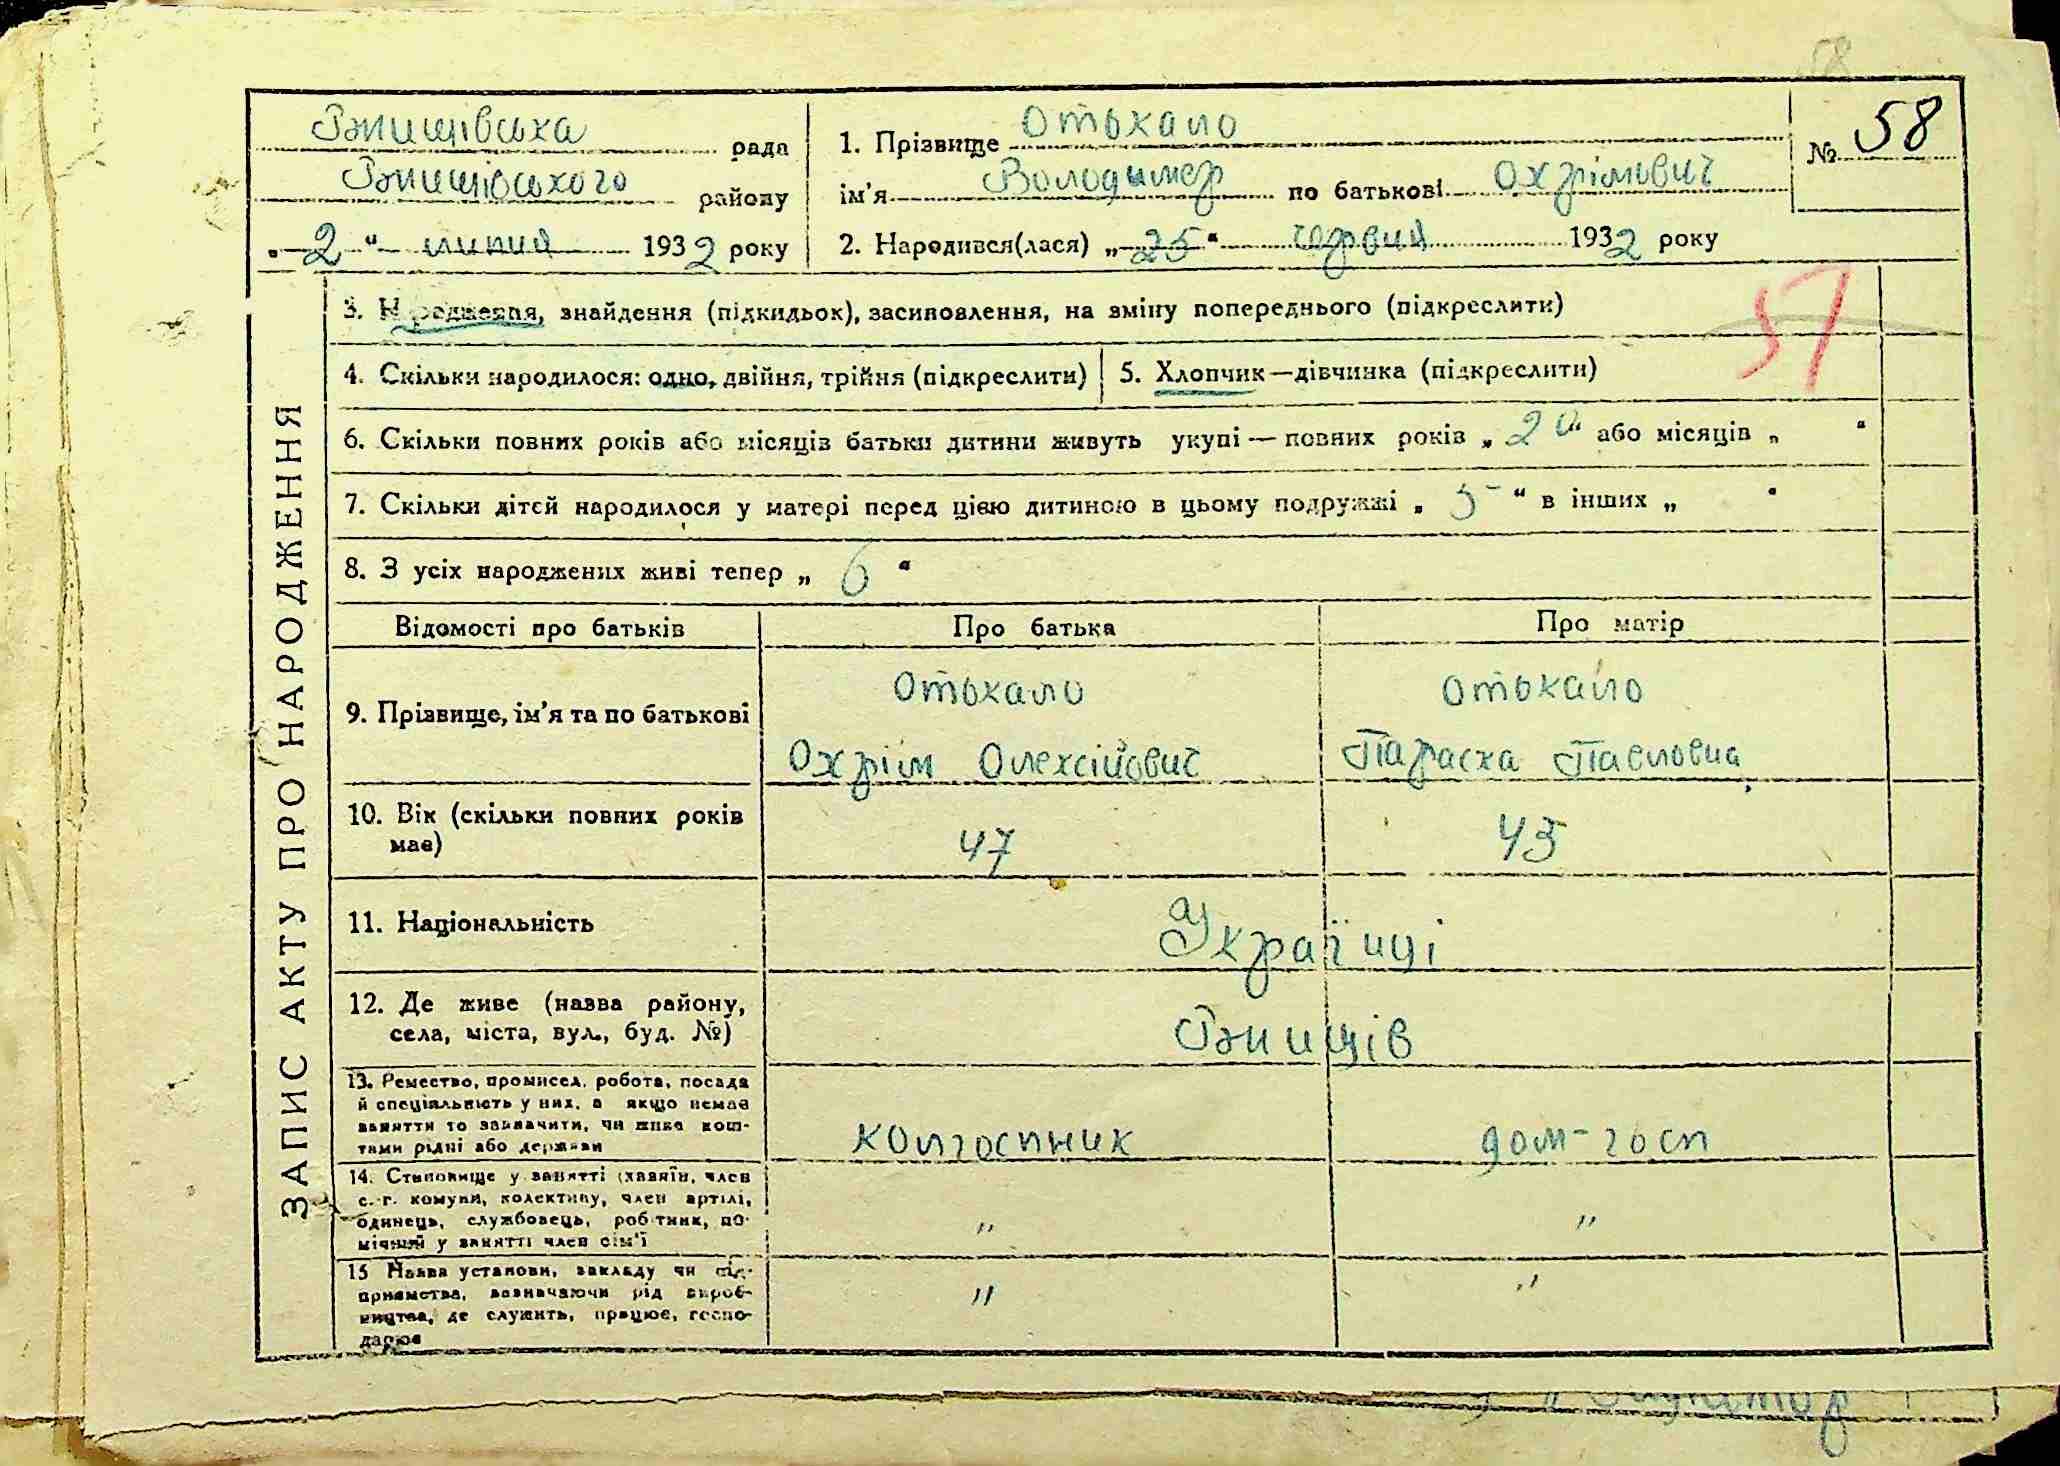 58
Ржищівська рада
Ржищівського району
„ 2 “ липня 1932 року
1. Прізвище Отькало
ім'я Володимер по батькові Охрімович
2. Народився(лася) „ 25 “ червня 1932 року
№ 58
ЗАПИС АКТУ ПРО НАРОДЖЕННЯ
3. Народження, знайдення (підкидьок), засиновлення, на зміну попереднього (підкреслити)
57
4. Скільки народилося: одно, двійня, трійня (підкреслити)
5. Хлопчик—дівчинка (підкреслити)
6. Скільки повних років або місяців батьки дитини живуть укупі — повних років „ 20 “ або місяців „ “
7. Скільки дітей народилося у матері перед цією дитиною в цьому подружжі „ 5 “ в інших „ “
8. З усіх народжених живі тепер „ 6 “
Відомості про батьків
Про батька
Про матір
9. Прізвище, ім'я та по батькові
Отькало
Охрім Олексійович
Отькало
Параска Павловна
10. Вік (скільки повних років
має)
47
43
11. Національність
Українці
12. Де живе (назва району,
села, міста, вул., буд. №)
Ржищів
13. Ремество, промисел, робота, посада
й спеціальність у них, а якщо немає
заняття то зазначити, чи живе кош-
тами рідні або держави
колгоспник
дом-госп
14. Становище у занятті (хазяїн, член
с.-г. комуни, колективу, член артілі,
одинець, службовець, робітник, по-
мічний у занятті член сім'ї
"
"
15 Назва установи, закладу чи під-
приємства, зазначаючи рід вироб-
ництва, де служить, працює, госпо-
дарює
"
"